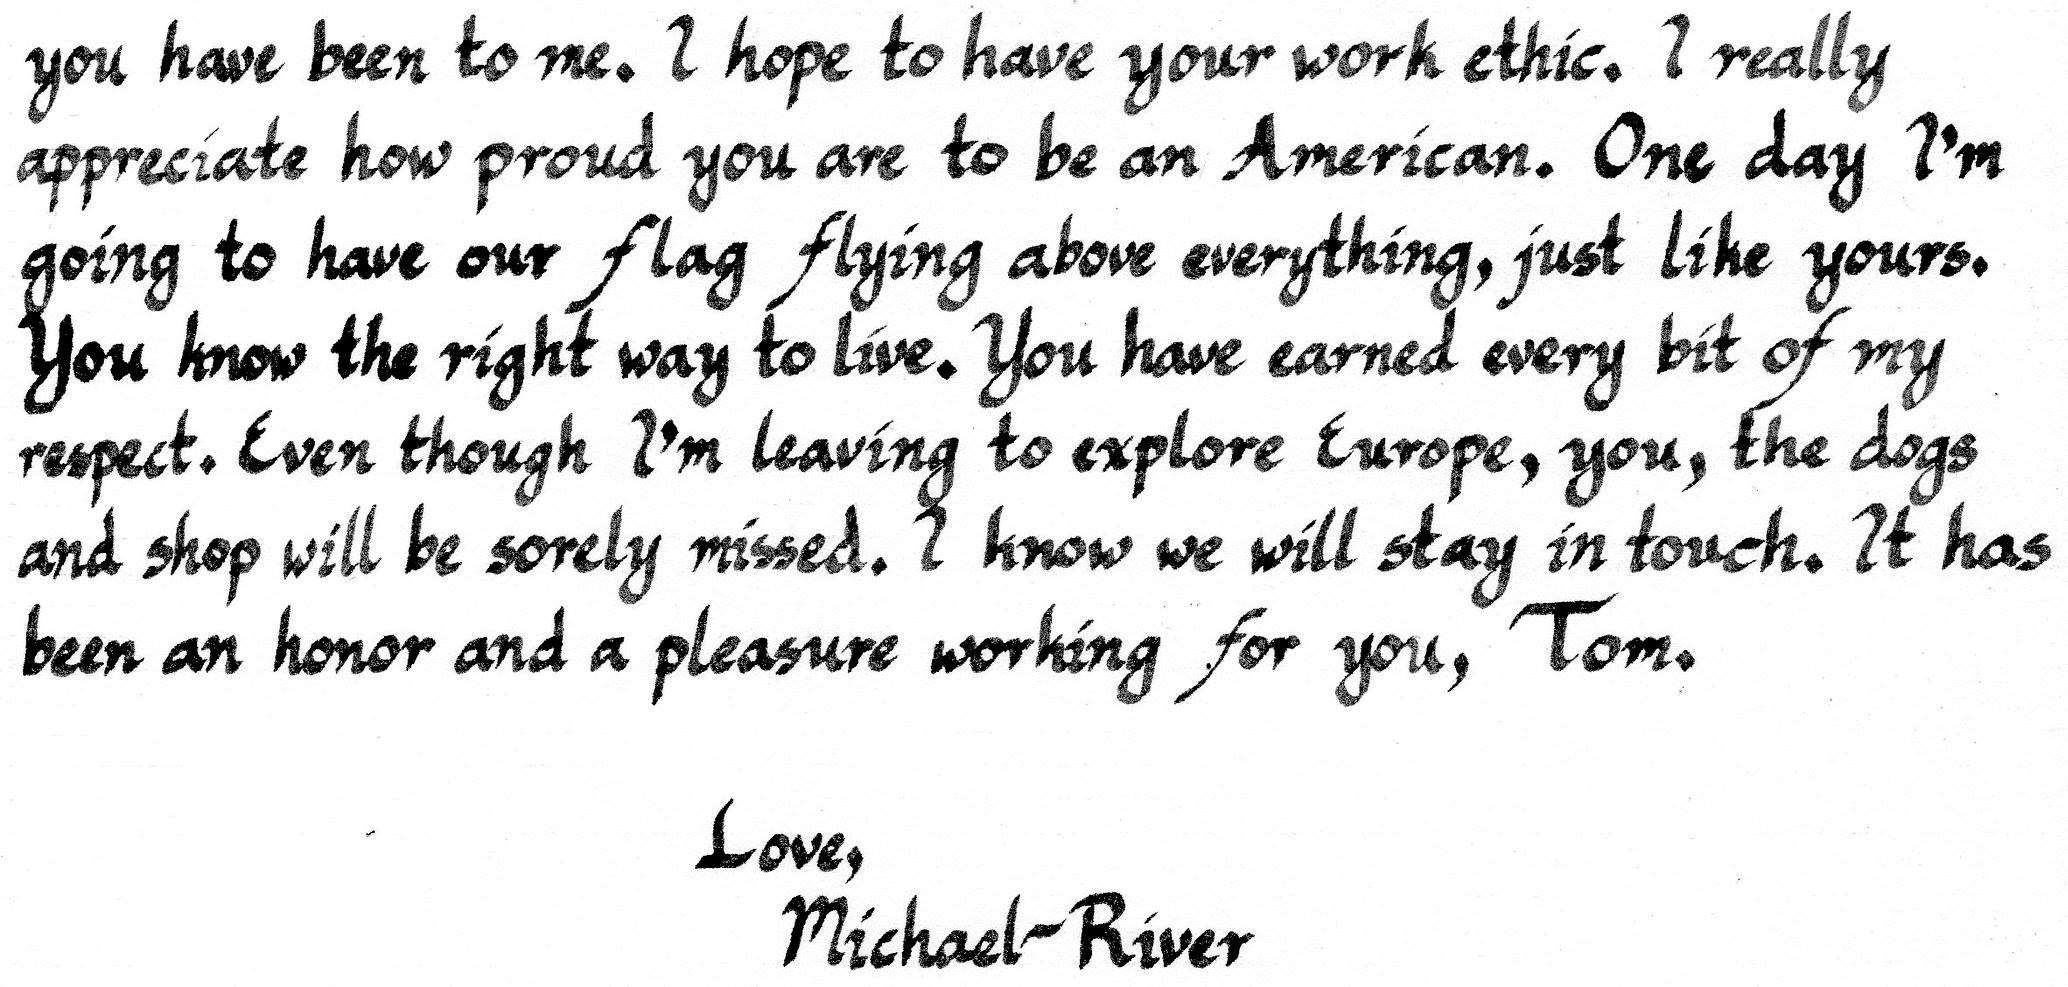 you have been to me. I hope to have your work ethic. I really
appreciate how proud you are to be an American. One day I'm
going to have our flag flying above everything, just like yours.
You know the right way to live. You have earned every bit of my
respect. Even though I'm leaving to explore Europe, you, the dogs
and shop will be sorely missed. I know we will stay in touch. It has
been an honor and a pleasure working for you, Tom.
Love,
Michael-River